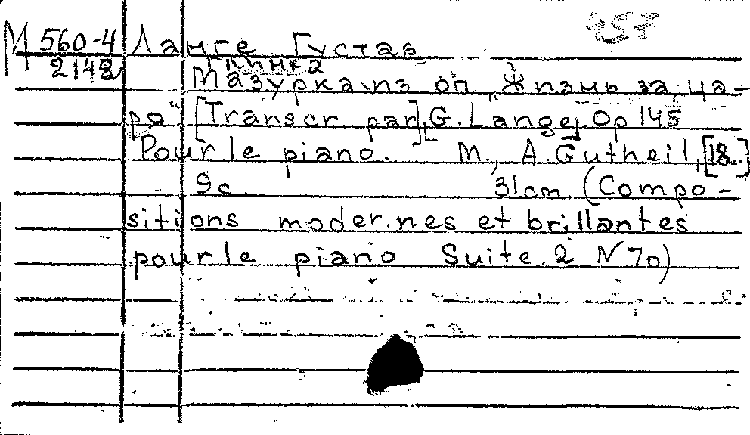 257
M 560-4 Ланге Густав
2142 Глинка
Мазурка из оп. „Жизнь за ца-
ря“ [Transcr par], G. Lange, Op 145
Pour le piano. M, A. Gutheil, [18..]
9c 31cm (Compo-
sitions modernes et brillantes
pour le piano Suite 2 N 70)